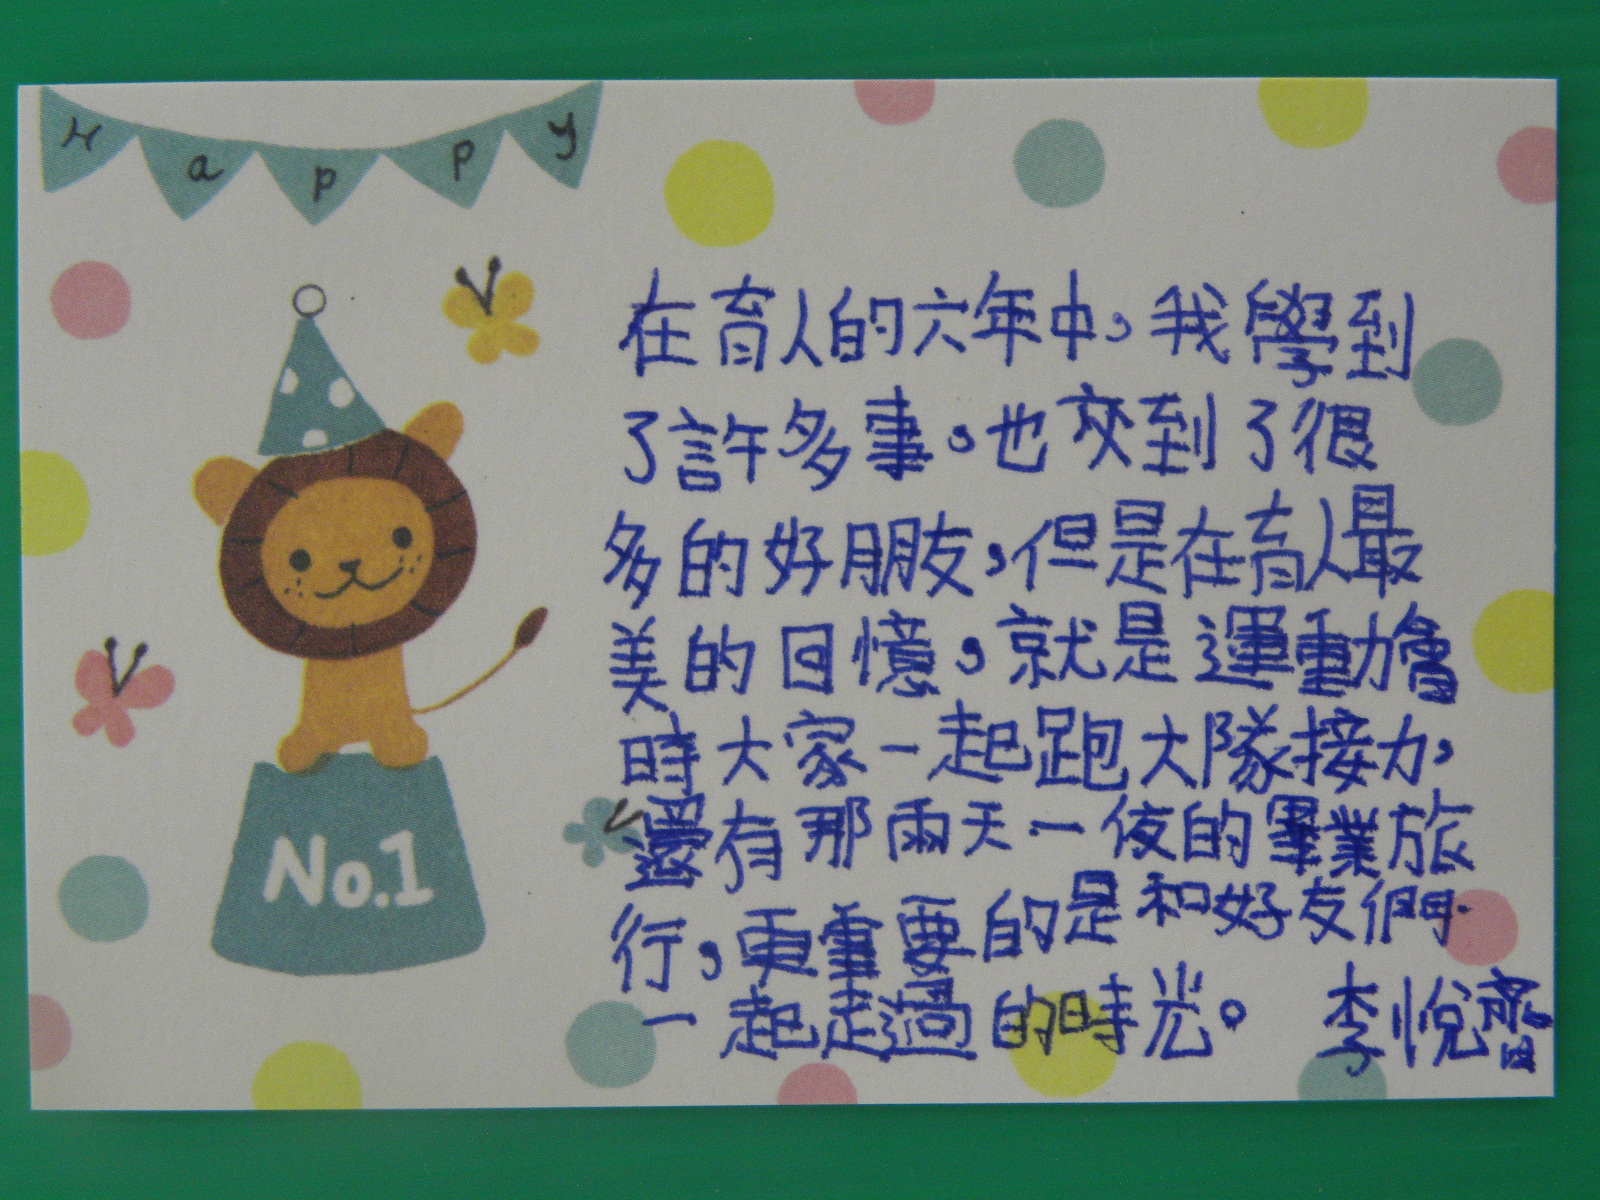 Happy
No.1
在育人的六年中,我學到
了許多事,也交到了很
多的好朋友,但是在育人最
美的回憶,就是運動會
時大家一起跑大隊接力,
還有那兩天一夜的畢業旅
行,更重要的是和好友們
一起走過的時光。 李悅